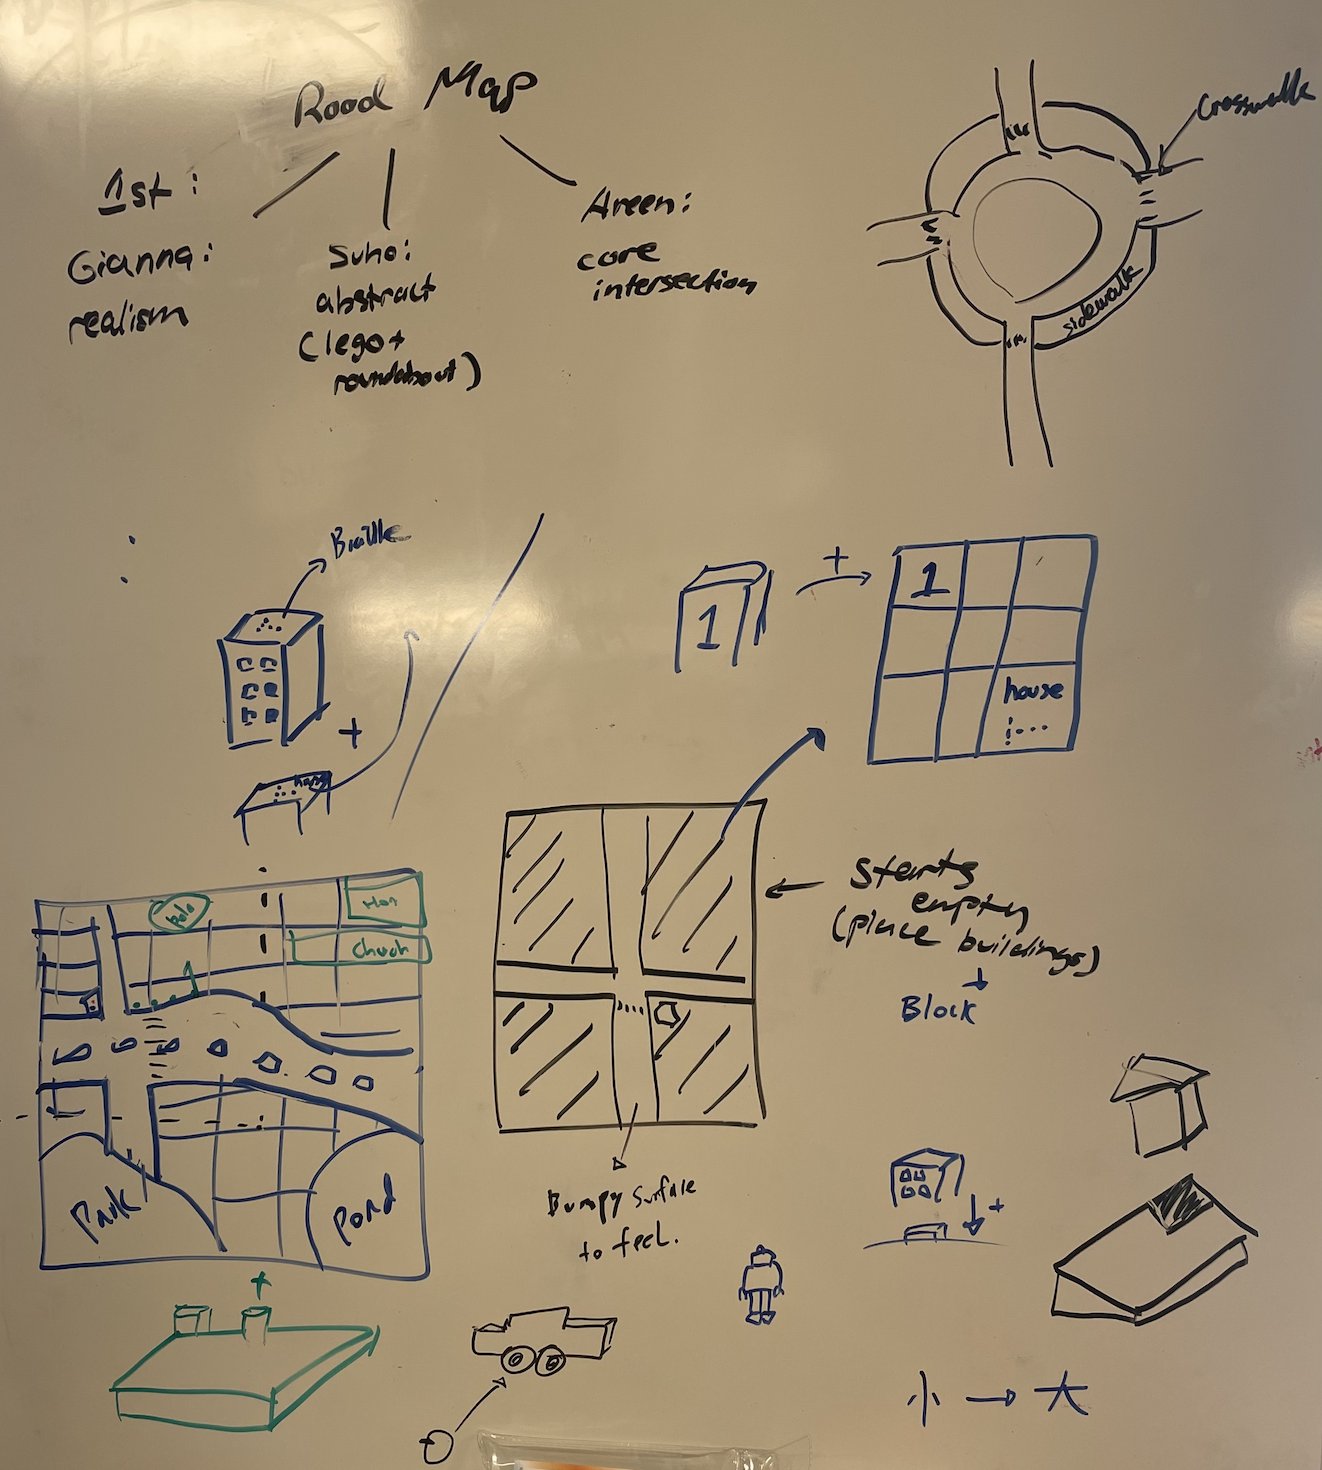 Road Map
1st:
Gianna:
realism
Suho:
abstract
(lego +
roundabout)
Areen:
core
intersection
Crosswalk
sidewalk
Braille
+
1
+
1
house
Starts
empty
(place buildings)
Block
Church
Park
Pond
Bumpy surface
to feel.
+
+
小 → 大